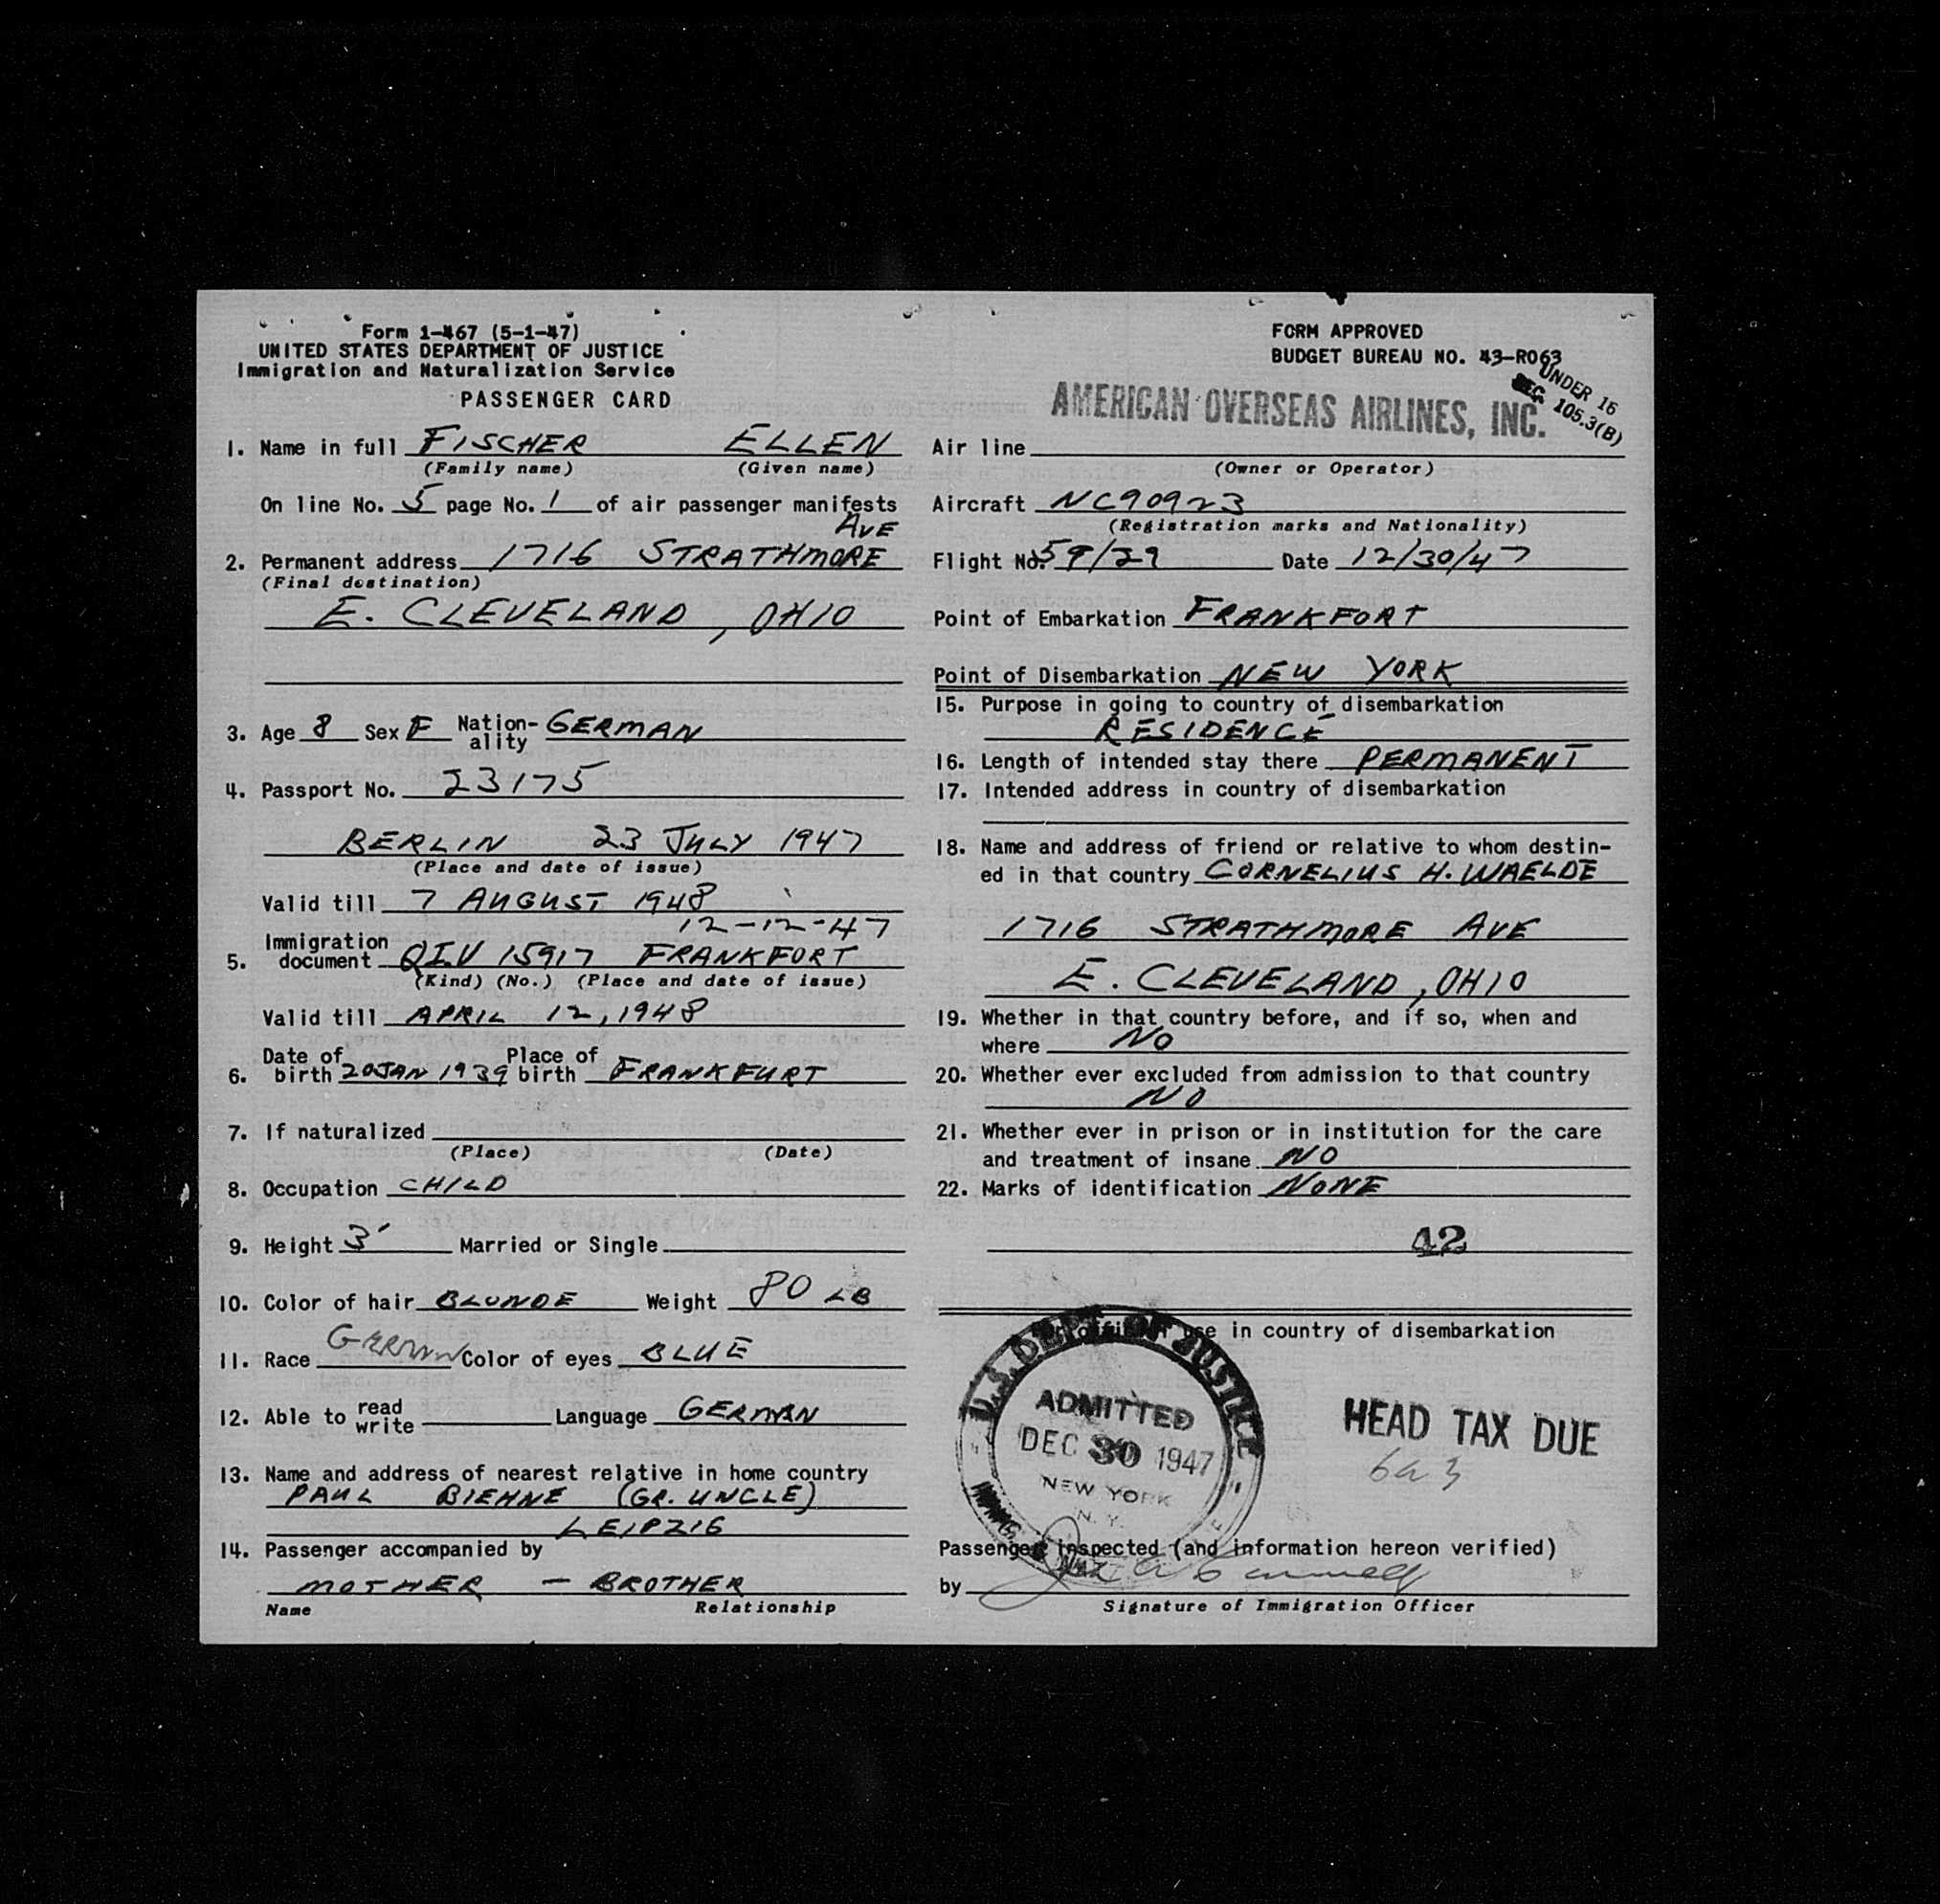 Form 1-467 (5-1-47)
UNITED STATES DEPARTMENT OF JUSTICE
Immigration and Naturalization Service
PASSENGER CARD
FORM APPROVED
BUDGET BUREAU NO. 43-R063
UNDER 16
SEC. 105.3(B)
AMERICAN OVERSEAS AIRLINES, INC.
1. Name in full FISCHER ELLEN
(Family name) (Given name)
On line No. 5 page No. 1 of air passenger manifests
AVE
2. Permanent address 1716 STRATHMORE
(Final destination)
E. CLEVELAND, OHIO
3. Age 8 Sex F Nation-ality GERMAN
4. Passport No. 23175
BERLIN 23 JULY 1947
(Place and date of issue)
Valid till 7 AUGUST 1948
12-12-47
5. Immigration document QIV 15917 FRANKFORT
(Kind) (No.) (Place and date of issue)
Valid till APRIL 12, 1948
6. Date of birth 20 JAN 1939 Place of birth FRANKFURT
7. If naturalized
(Place) (Date)
8. Occupation CHILD
9. Height 3' Married or Single
10. Color of hair BLONDE Weight 80 LB
11. Race German Color of eyes BLUE
12. Able to read write Language GERMAN
13. Name and address of nearest relative in home country
PAUL BIEHNE (GR. UNCLE)
LEIPZIG
14. Passenger accompanied by
MOTHER - BROTHER
Name Relationship
Air line
(Owner or Operator)
Aircraft NC90923
(Registration marks and Nationality)
Flight No. 59/29 Date 12/30/47
Point of Embarkation FRANKFORT
Point of Disembarkation NEW YORK
15. Purpose in going to country of disembarkation
RESIDENCE
16. Length of intended stay there PERMANENT
17. Intended address in country of disembarkation
18. Name and address of friend or relative to whom destin-
ed in that country CORNELIUS H. WAELDE
1716 STRATHMORE AVE
E. CLEVELAND, OHIO
19. Whether in that country before, and if so, when and
where NO
20. Whether ever excluded from admission to that country
NO
21. Whether ever in prison or in institution for the care
and treatment of insane NO
22. Marks of identification NONE
42
use in country of disembarkation
U.S. DEPT. OF JUSTICE
ADMITTED
DEC 30 1947
NEW YORK
N. Y.
HEAD TAX DUE
Passenger inspected (and information hereon verified)
by
Signature of Immigration Officer